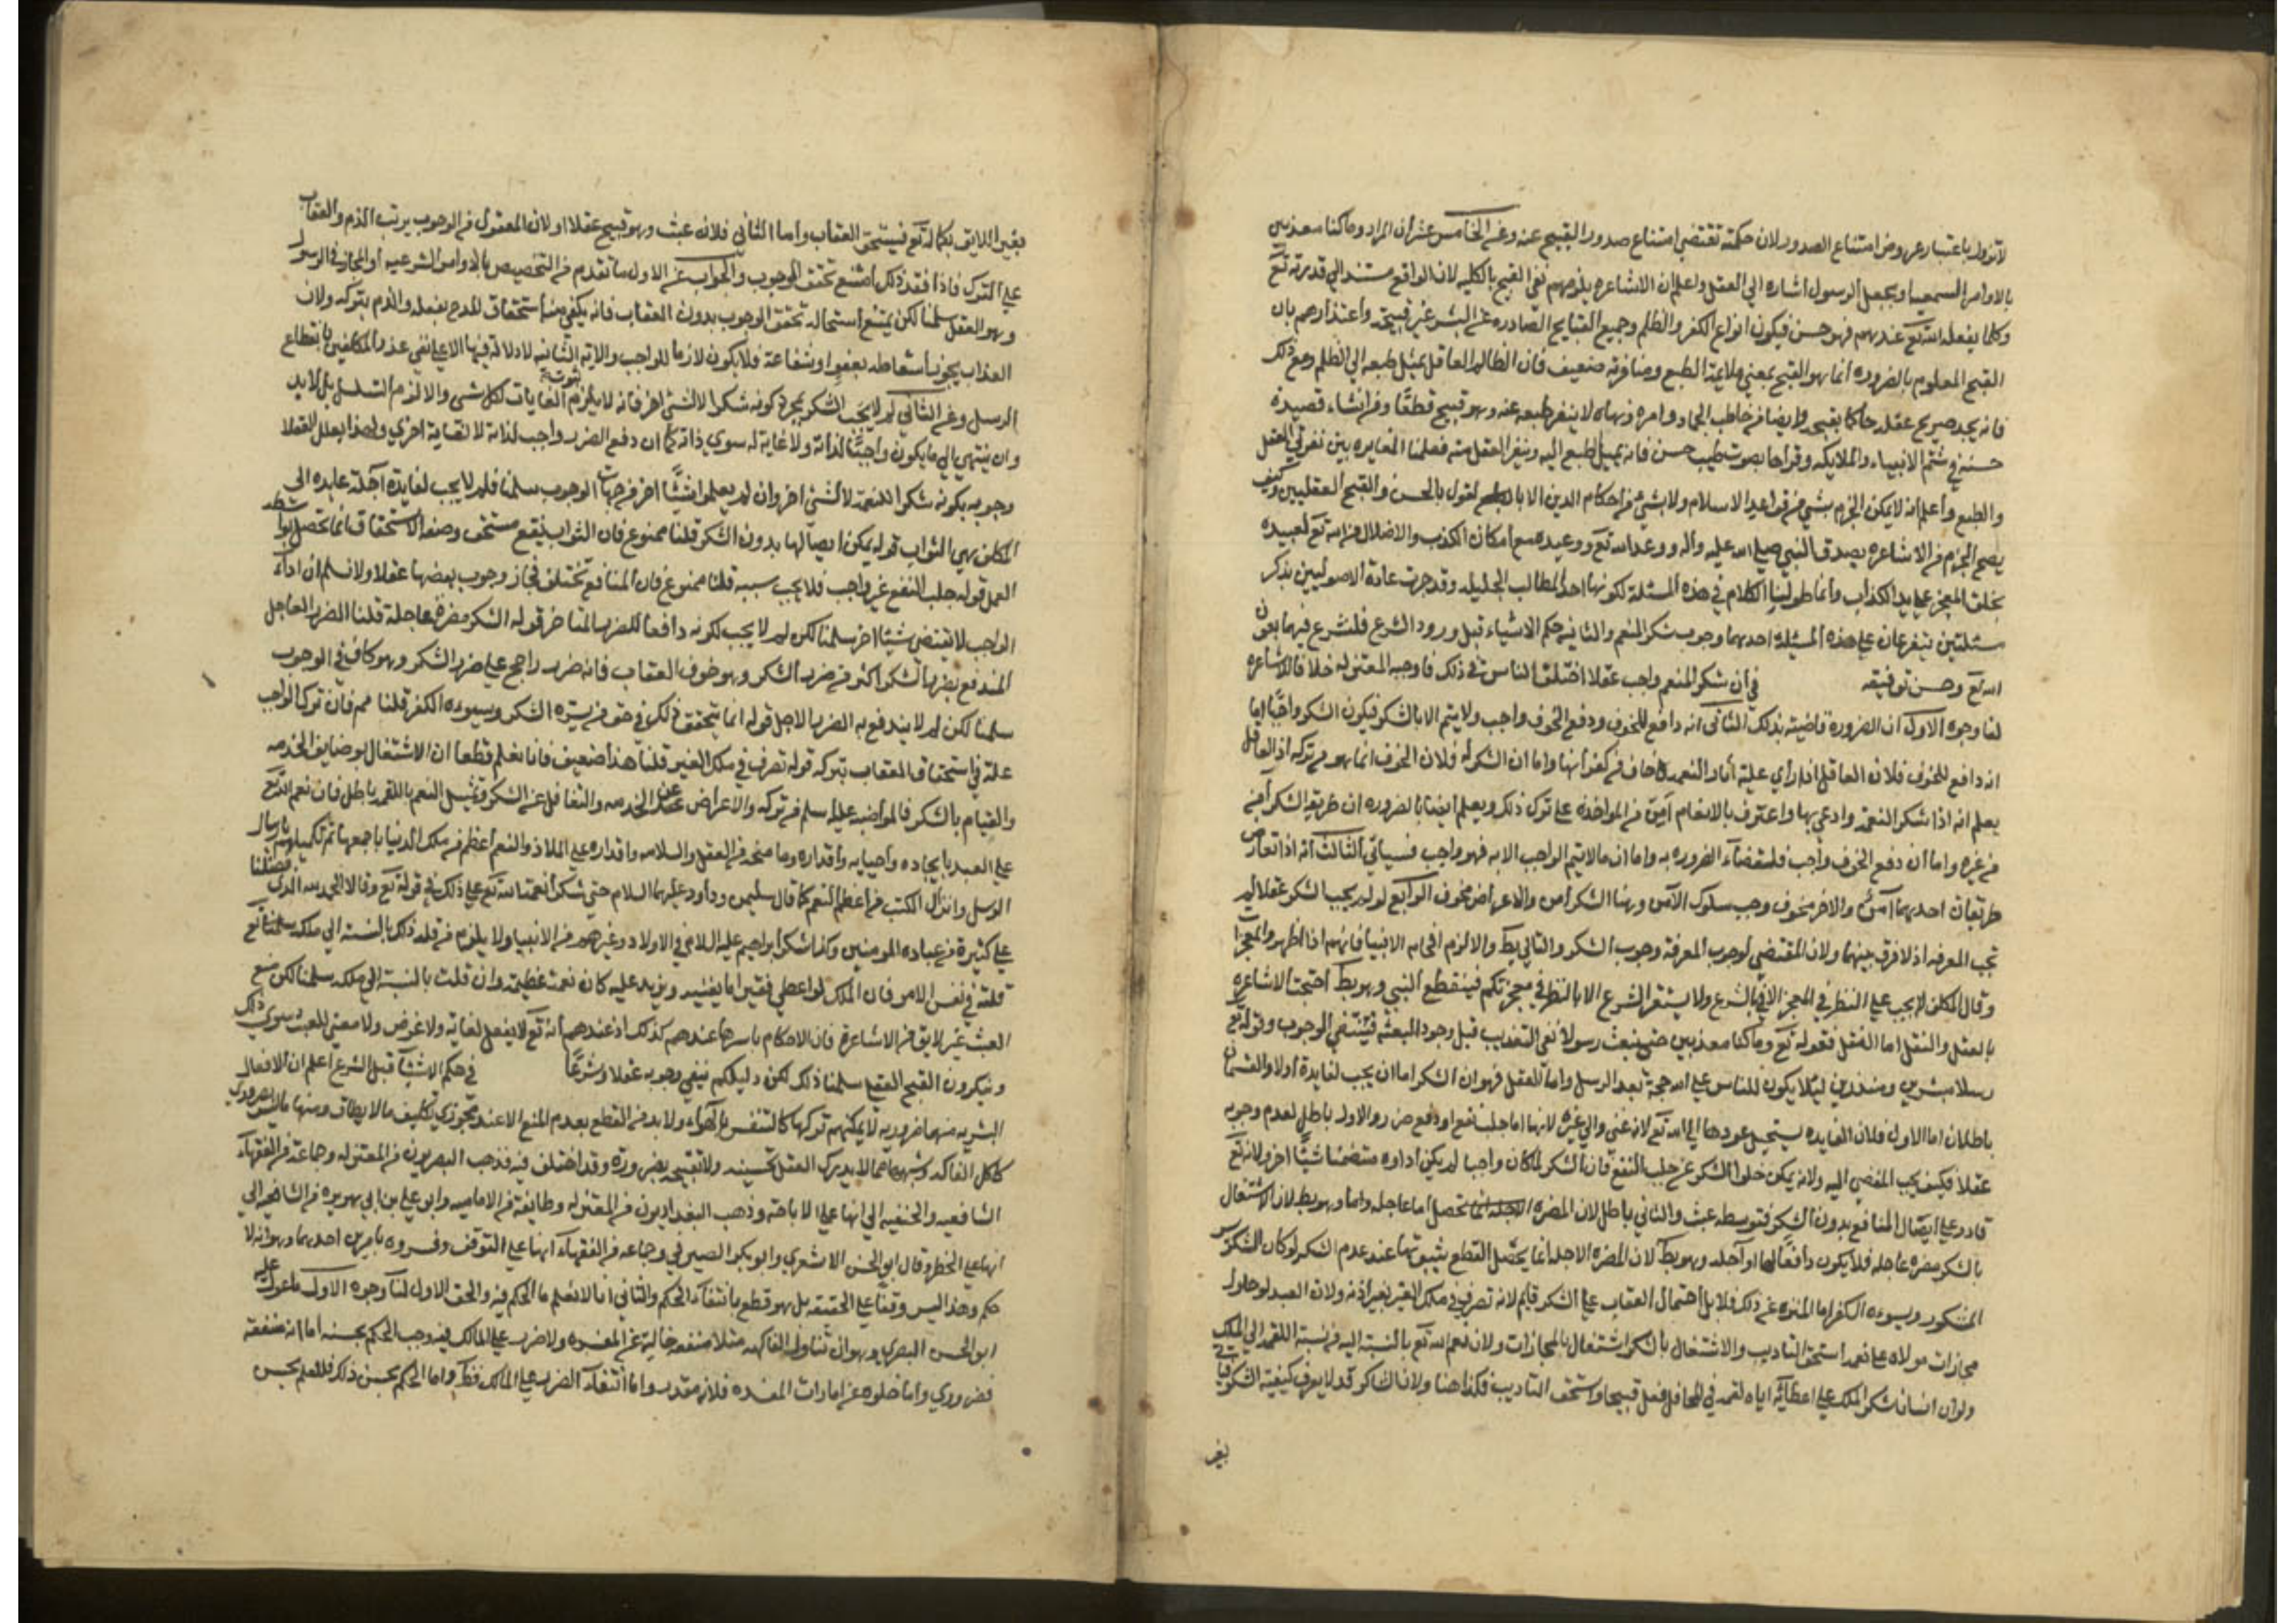 لا تزول باعتبار عروض امتناع الصدور لان حكمته تقتضي امتناع صدور القبيح عنه وعن الخامس عشر ان المراد وما كنا معذبين
بالاوامر السمعيه او يجعل الرسول اشاره الي العقل واعلم ان الاشاعره يلزمهم نفي القبح بالكليه لان الواقع مستند الي قدرته تع
وكلما يفعله الله تع عندهم فهو حسن فيكون انواع الكفر والظلم وجميع القبايح الصادره عن البشر غير قبيحه واعتذارهم بان
القبح المعلوم بالضروره انما هو القبح بمعني ملايمة الطبع ومنافرته ضعيف فان الظالم العاقل يميل طبعه الي الظلم ومع ذلك
فانه يجد صريح عقله حاكما بقبحه وايضا من خاطب الجماد وامره ونهاه لا ينفر طبعه عنه وهو قبيح قطعا ومن انشاء قصيده
حسنه في شتم الانبياء والملايكه وقراها بصوت طيب حسن فانه يميل الطبع اليه وينفر العقل منه فعلمنا المغايره بين نفرتي العقل
والطبع واعلم انه لا يمكن الجزم بشي من قواعد الاسلام ولا بشي من احكام الدين الا بالقول بالحسن والقبح العقليين وكيف
يصح الجزم من الاشاعره بصدق النبي صلي الله عليه واله ووعد الله تع ووعيده مع امكان الكذب والاضلال من الله تع لعبيده
بخلق المعجز علي يد الكذاب وانما طولنا الكلام في هذه المسئلة لكونها احد المطالب الجليله وقد جرت عادة الاصوليين بذكر
مسئلتين تتفرعان علي هذه المسئله احدهما وجوب شكر المنعم والثانيه حكم الاشياء قبل ورود الشرع فلنشرع فيهما بعون
الله تع وحسن توفيقه في ان شكر المنعم واجب عقلا اختلف الناس في ذلك فاوجبه المعتزله خلافا للاشاعره
لنا وجوه الاول ان الضرورة قاضيته بذلك الثاني انه دافع للخوف ودفع الخوف واجب ولا يتم الا بالشكر فيكون الشكر واجبا اما
انه دافع للخوف فلان العاقل اذا راي عليه اثار النعمه خاف من كفرانها واما ان الشكر فلان الخوف انما هو من تركه اذ العاقل
يعلم انه اذا شكر النعمه وادعي بها واعترف بالانعام امن من المواخذه علي ترك ذلك ويعلم ايضا بالضروره ان طريقة الشكر امن
من غيره واما ان دفع الخوف واجب فلقضاء الضروره به واما ان ما لا يتم الواجب الا به فهو واجب فسياتي الثالث انه اذا تعارض
طريقان احدهما امن والاخر مخوف وجب سلوك الآمن وهنا الشكر امن والاعراض مخوف الرابع لو لم يجب الشكر عقلا لم
تجب المعرفه اذ لا فرق بينهما ولان المقتضي لوجوب المعرفة وجوب الشكر والتالي بط والا لزم افحام الانبيا فانهم اذا اظهروا المعجزات
وقال المكلف لا يجب علي النظر في المعجز الا بالشرع ولا يستقر الشرع الا بالنظر في معجزتكم فينقطع النبي وهو بط احتجت الاشاعره
بالعقل والنقل اما النقل فقوله تع وما كنا معذبين حتي نبعث رسولا نفي التعذيب قبل وجود البعثه فينتفي الوجوب وقوله تع
رسلا مبشرين ومنذرين ليلا يكون للناس علي الله حجة بعد الرسل واما العقل فهو ان الشكر اما ان يجب لفايدة اولا والقسمان
باطلان اما الاول فلان الفايده يستحيل عودها الي الله تع لانه غني والي غيره لانها اما جلب نفع او دفع ضرر والاول باطل لعدم وجوبه
عقلا فكيف يجب المفضي اليه ولانه يمكن خلو الشكر عن جلب النفع فان الشكر لما كان واجبا لم يكن اداوه متضمنا شيئا اخر ولانه تع
قادر علي ايصال المنافع بدون الشكر فتوسطه عبث والثاني باطل لان المضره تحصل اما عاجله واما وهو بط لان الاشتغال
بالشكر مضره عاجله فلا يكون دافعا لها او آجله وهو بط لان المضره الاجله انما يحصل القطع بثبوتها عند عدم الشكر لو كان الشكر يسر
المشكور ويسوءه الكفر اما المنزه عن ذلك فلا بل احتمال العقاب علي الشكر قايم لانه تصرف في ملك الغير بغير اذنه ولان العبد لو حاول
مجازات مولاه علي نعمه استحق التاديب والاشتغال بالشكر اشتغال بالمجازات ولان نعم الله تع بالنسبة اليه من نسبة اللقمه الي الملك
ولو ان انسانا شكر الملك علي اعطائه اياه لقمه في المحافل فعل قبيحا واستحق التاديب فكذا هنا ولان الشاكر قد لا يعرف كيفية الشكر فياتي
بغير
بغير اللايق بكماله تع فيستحق العقاب واما الثاني فلانه عبث وهو قبيح عقلا او لان المعقول من الوجوب يرتب الذم والعقاب
علي الترك فاذا فقد ذلك امتنع تحقق الوجوب والجواب عن الاول ما تقدم من التخصيص بالاوامر الشرعيه او المجاز في الرسول
وهو العقل سلمنا لكن يمنع استحالة تحقق الوجوب بدون العقاب فانه يكفي منه استحقاق المدح بفعله والذم بتركه ولان
العذاب يجوز اسقاطه بعفو او شفاعة فلا يكون لازما للواجب والاية الثانيه لا دلالة فيها الا علي نفي عذر المكلفين بانقطاع
الرسل وعن الثاني لم لا يجب الشكر بمجرد كونه شكرا لا لشي اخر فانه لا يلزم ثبوت الغايات لكل شي والا لزم التسلسل بل لا بد
وان ينتهي الي ما يكون واجبا لذاته ولا غاية له سوي ذاته كما ان دفع الضرر واجب لذاته لا لغاية اخري ولهذا يعلل العقلا
وجوبه بكونه شكرا للنعمة لا لشي اخر وان لم يعلموا شيئا اخر من جهات الوجوب سلمنا فلم لا يجب لفايدة آجلة عايده الي
المكلف وهي الثواب قوله يمكن ايصالها بدون الشكر قلنا ممنوع فان الثواب نفع مستحق وصفة الاستحقاق انما تحصل بواسطه
العمل قوله جلب النفع غير واجب فلا يجب سببه قلنا ممنوع فان المنافع تختلف فجاز وجوب بعضها عقلا ولا نسلم ان اداء
الواجب لا يقتضي شيئا اخر سلمنا لكن لم لا يجب لكونه دافعا للضرر المتاخر قوله الشكر مضرة عاجلة قلنا الضرر العاجل
المندفع بضرر الشكر اكثر من ضرر الشكر وهو خوف العقاب فانه ضرر راجح علي ضرر الشكر وهو كاف في الوجوب
سلمنا لكن لم لا يندفع به الضرر الاجل قوله انما يتحقق ذلك في حق من يسره الشكر ويسوءه الكفر قلنا مم فان ترك الواجب
علة في استحقاق العقاب بتركه قوله تصرف في ملك الغير قلنا هذا ضعيف فانا نعلم قطعا ان الاشتغال بوظايف الخدمه
والقيام بالشكر فالمواضبه عليه اسلم من تركه والاعراض عن الخدمه والتغافل عن الشكر وتمثيل النعم باللقمه باطل فان نعم الله تع
علي العبد بايجاده واحيايه واقداره وما منحه من العقل والسلامه واقداره علي الملاذ والنعم اعظم من ملك الدنيا باجمعها ثم تكميله بارسال
الرسل وانزال الكتب من اعظم النعم كما قال سليمن وداود عليهما السلام حتي شكرا نعمة الله تع علي ذلك في قوله تع وقالا الحمد لله الذي فضلنا
علي كثير من عباده المومنين وكذا شكر ابراهيم عليه السلام في الاولاد وغيرهم من الانبيا ولا يلزم من قلة ذلك بالنسبة الي ملكه تع
قلته في نفس الامر فان الملك لو اعطي فقيرا ما يغنيه ويزيد عليه كان نعمة عظيمة وان قلت بالنسبة الي ملكه سلمنا لكن منع
العبث غير لايق من الاشاعرة فان الاحكام باسرها عندهم كذلك اذ عندهم انه تع لا يفعل لغاية ولا غرض ولا معني للعبث سوي ذلك
وينكرون القبح العقلي سلمنا ذلك لكن دليلكم ينفي وجوبه عقلا وشرعا في حكم الاشياء قبل الشرع اعلم ان الافعال
البشريه منها ضروريه لا يمكنهم تركها كالتنفس بالهواء ولا بد من القطع بعدم المنع الا عند مجوزي تكليف ما لا يطاق ومنها ما ليس بضروري
كاكل الفاكهه وشبهها مما لا يدرك العقل تحسينه ولا تقبيحه بضرورة وقد اختلف فيه فذهب البصريون من المعتزله وجماعة من الفقهاء
الشافعيه والحنفيه الي انها علي الاباحة وذهب البغداديون من المعتزله وطايفة من الاماميه وابو علي بن ابي هريره من الشافعيه الي
انها علي الحظر وقال ابو الحسن الاشعري وابو بكر الصيرفي وجماعه من الفقهاء انها علي التوقف وفسروه بامرين احدهما وهو انه لا
حكم وهذا ليس وقفا علي الحقيقه بل هو قطع بانتفاء الحكم والثاني انا لا نعلم ما الحكم فيه والحق الاول لنا وجوه الاول ما عول عليه
ابو الحسن البصري وهو ان تناول الفاكهه مثلا منفعه خالية عن المفسده ولا ضرر علي المالك فيه وجب الحكم بحسنه اما انه منفعه
فضروري واما خلوه عن امارات المفسده فلانه مقدر واما انتفاء الضرر علي المالك فظ واما الحكم بحسن ذلك فللعلم بحسن